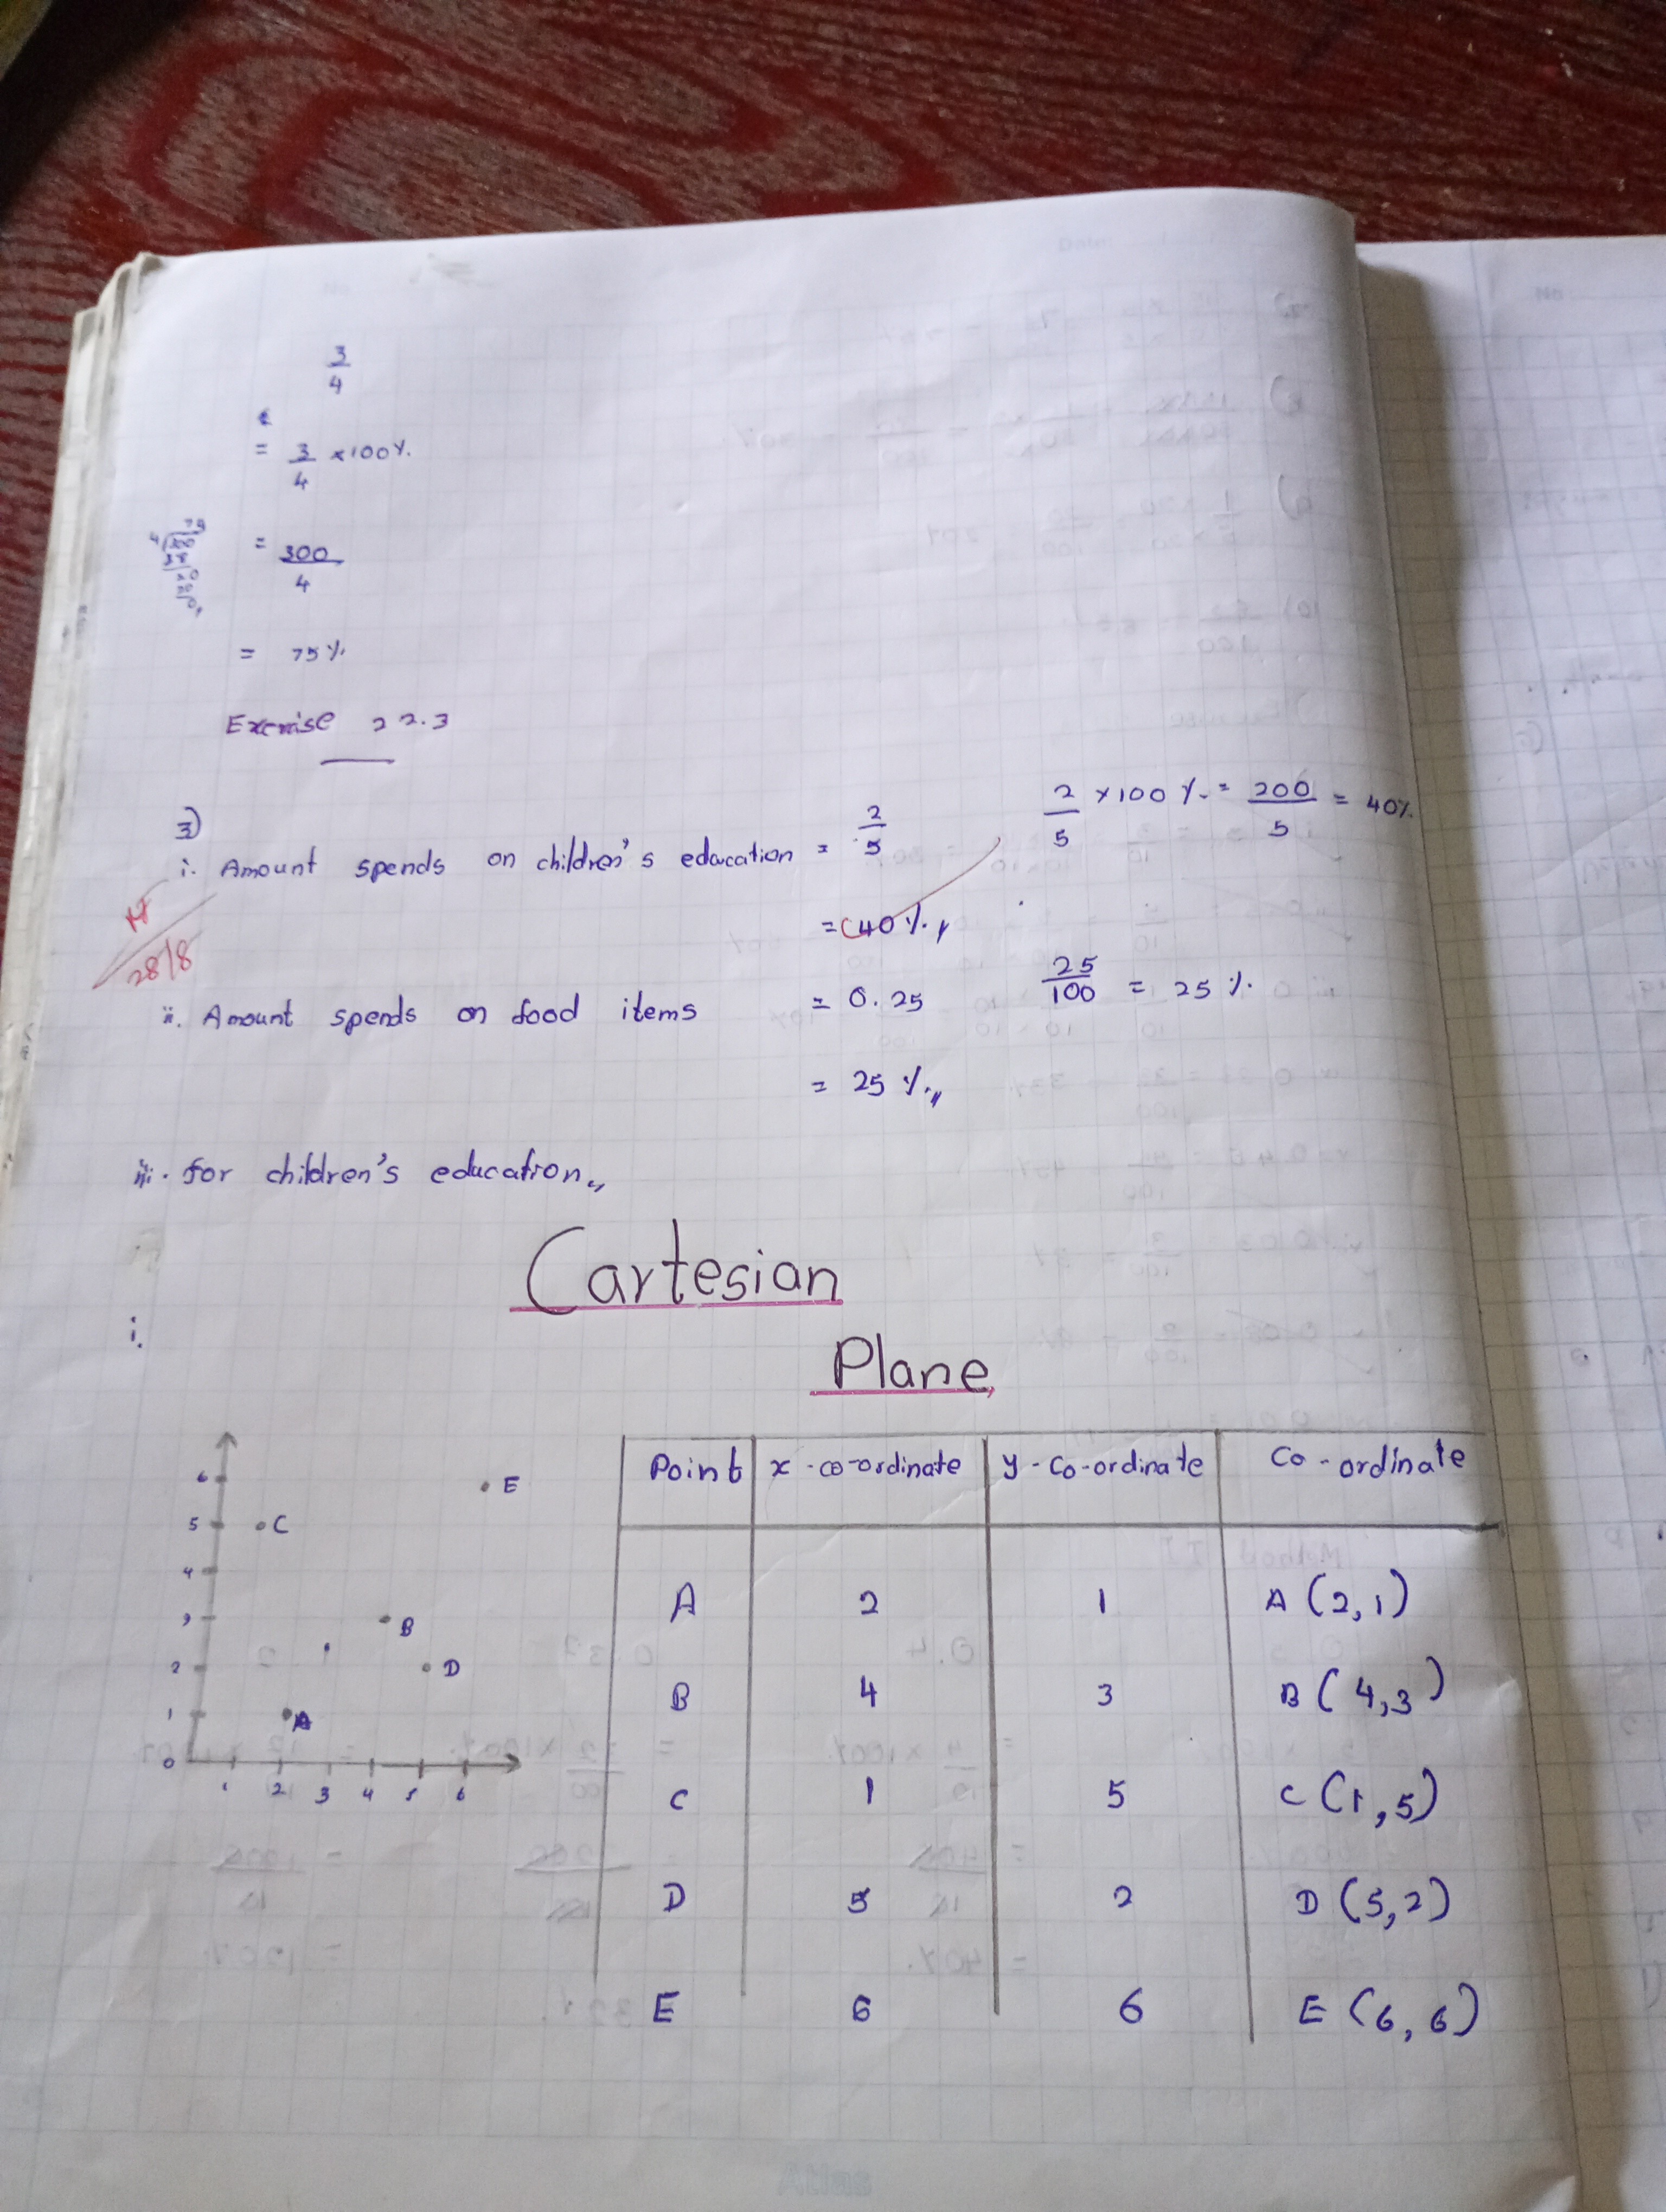 3/4
= 3/4 ×100%
= 300/4
= 75%
Exercise 22.3
3)
i. Amount spends on children's education = 2/5
2/5 ×100% = 200/5 = 40%
= 40%
28/8
ii. Amount spends on food items = 0.25
25/100 = 25%
= 25%
iii. for children's education
Cartesian
Plane
i.
6
5
4
3
2
1
0
1 2 3 4 5 6
E
C
B
D
A
Point x-co-ordinate y-co-ordinate co-ordinate
A 2 1 A (2,1)
B 4 3 B (4,3)
C 1 5 C (1,5)
D 5 2 D (5,2)
E 6 6 E (6,6)
Atlas